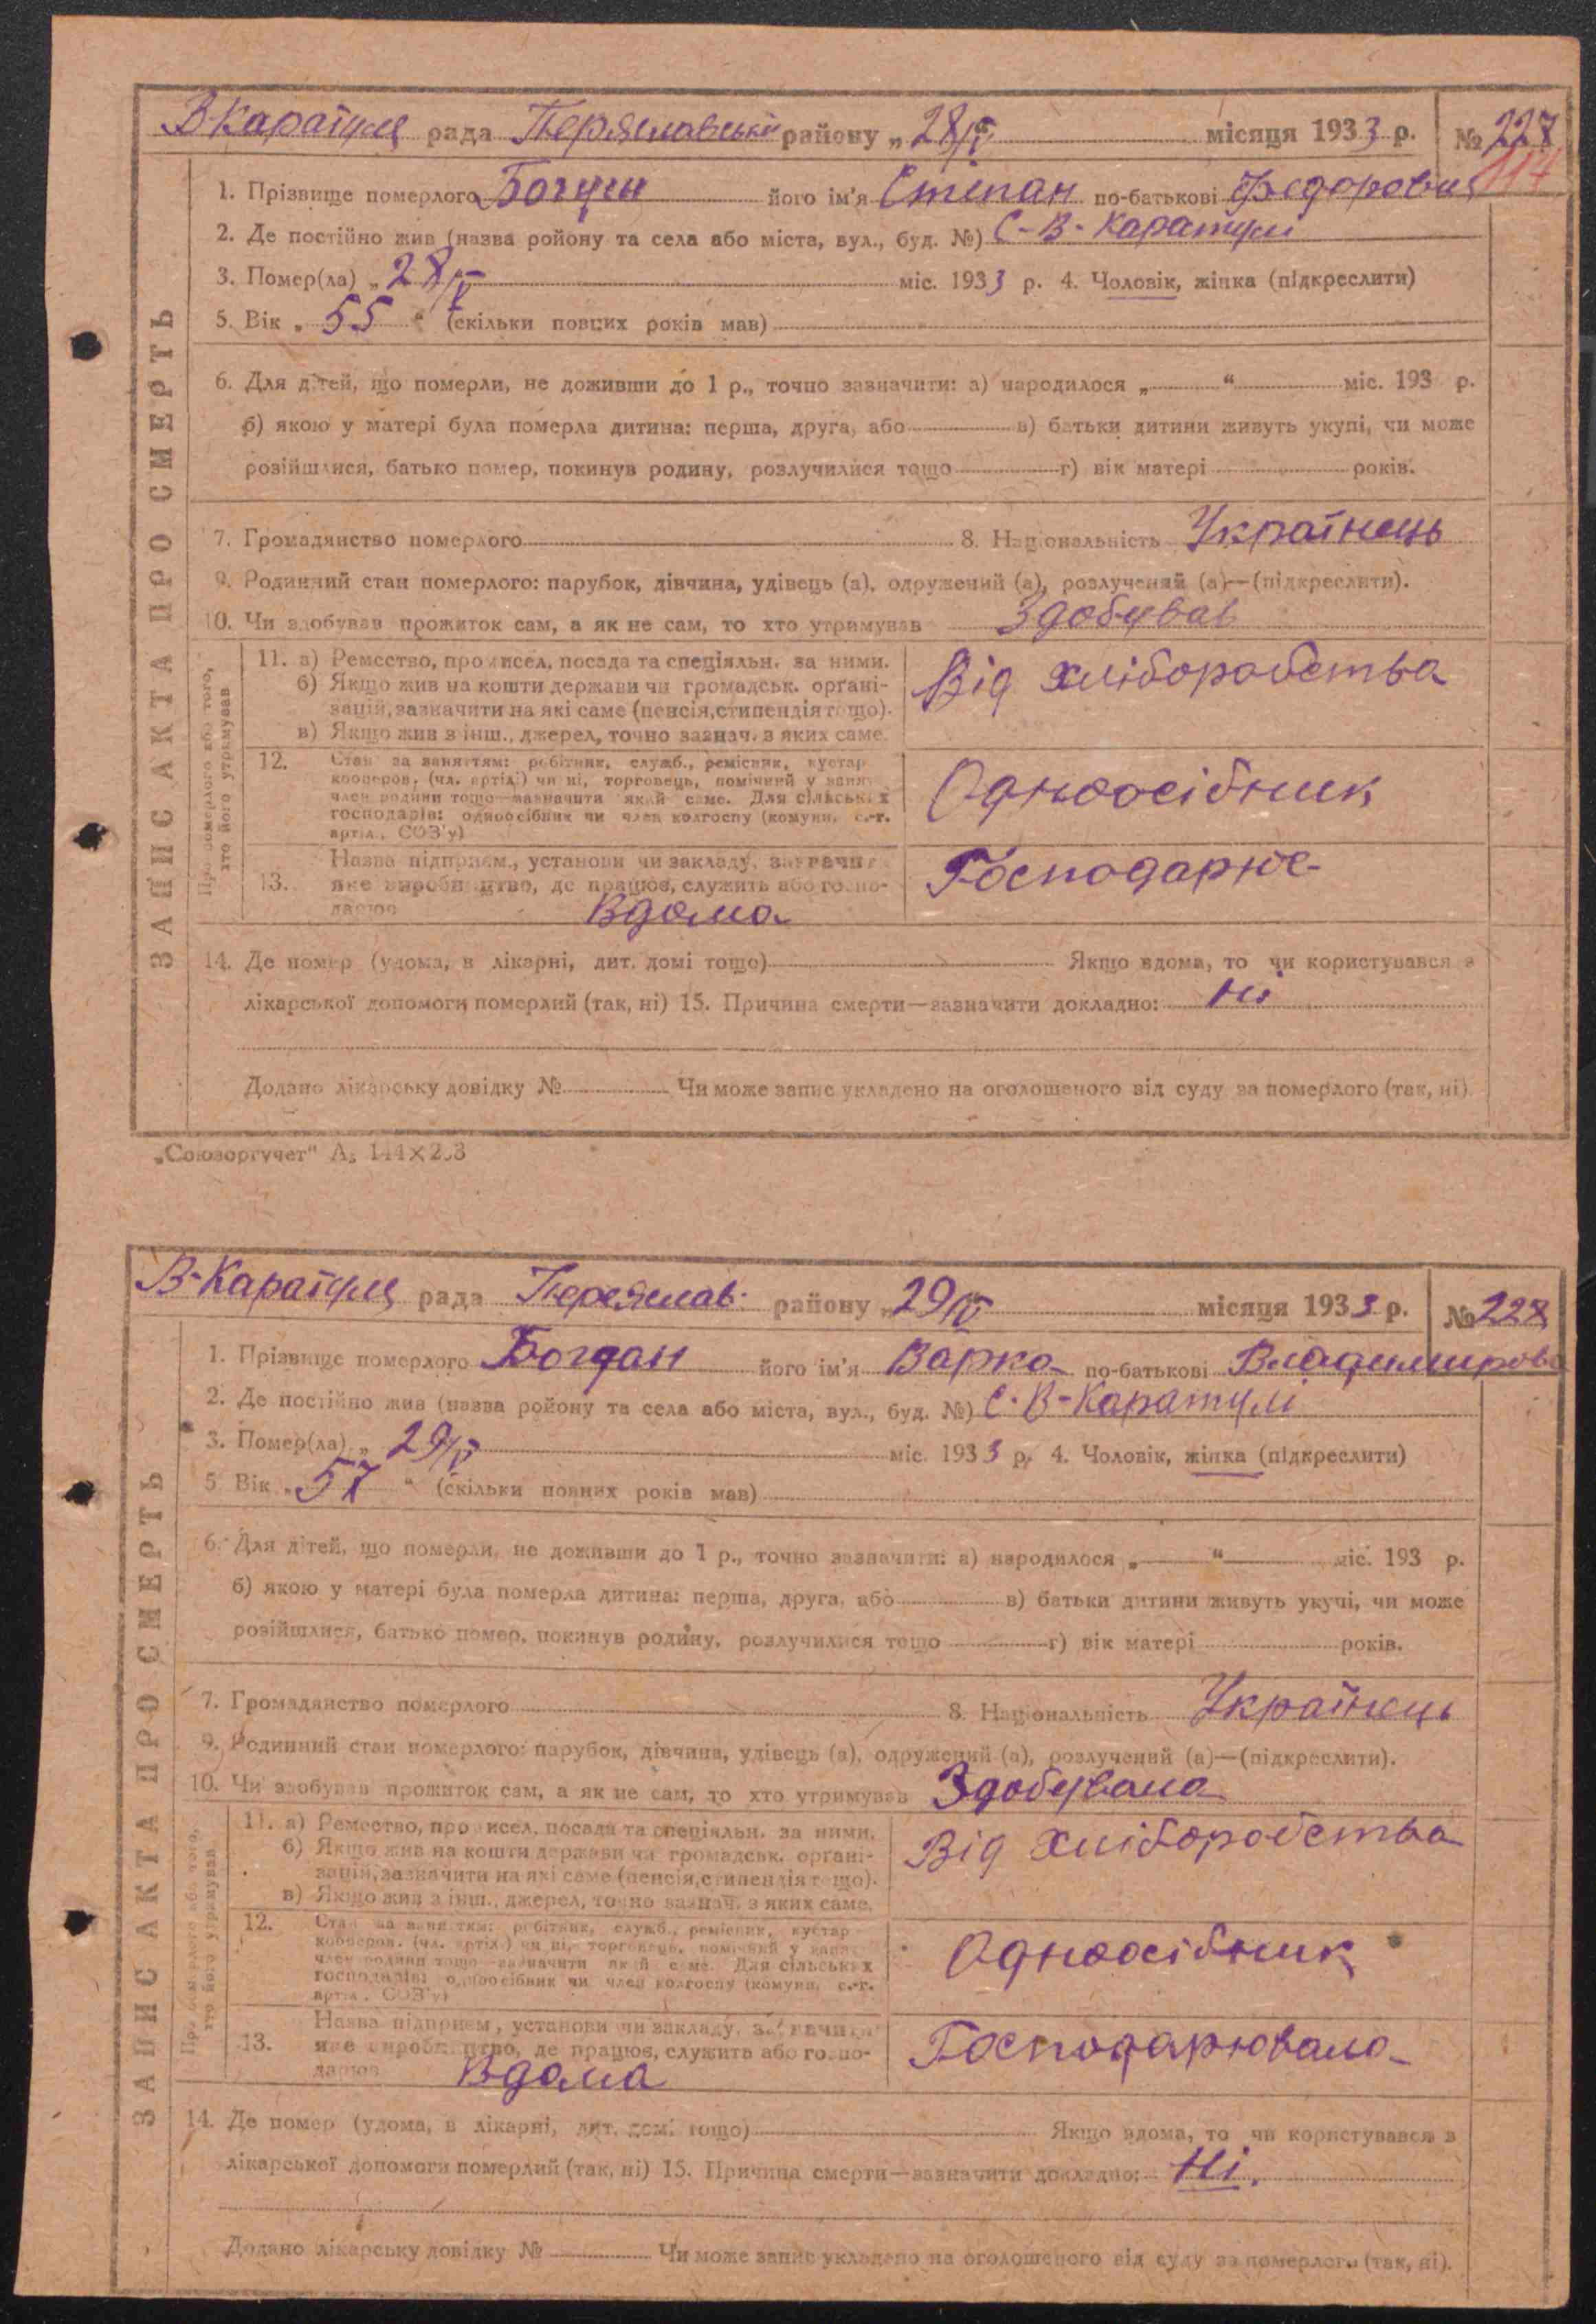 В-Каратуля рада Переяславський району „28/V місяця 1933 р. № 227
114
1. Прізвище померлого Богун його ім'я Степан по-батькові Федорович
2. Де постійно жив (назва ройону та села або міста, вул., буд. №) С-В-Каратулі
3. Помер(ла) „28/V міс. 1933 р. 4. Чоловік, жінка (підкреслити)
5. Вік „ 55 “ (скільки повних років мав)
6. Для дітей, що померли, не доживши до 1 р., точно зазначити: а) народилося „ “ міс. 193 р.
б) якою у матері була померла дитина: перша, друга, або в) батьки дитини живуть укупі, чи може
розійшлися, батько помер, покинув родину, розлучилися тощо г) вік матері років.
7. Громадянство померлого 8. Національність Українець
9. Родинний стан померлого: парубок, дівчина, удівець (а), одружений (а), розлучений (а)—(підкреслити).
10. Чи здобував прожиток сам, а як не сам, то хто утримував Здобував
11. а) Ремество, промисел, посада та спеціяльн. за ними.
б) Якщо жив на кошти держави чи громадськ. органі-
зацій, зазначити на які саме (пенсія, стипендія тощо).
в) Якщо жив з інш., джерел, точно зазнач. з яких саме.
Від хліборобства
12. Стан за заняттям: робітник, служб., ремісник, кустар
кооперов. (чл. артіл.) чи ні, торговець, помічний у занят.
член родини тощо—зазначити який саме. Для сільських
господарів: одноосібник чи член колгоспу (комуни, с.-г.
артіл., СОЗ'у)
Одноосібник
13. Назва підприєм., установи чи закладу, зазначити
яке виробництво, де працює, служить або госпо-
дарює Вдома
Господарює
14. Де помер (удома, в лікарні, дит. домі тощо) Якщо вдома, то чи користувався з
лікарської допомоги померлий (так, ні) 15. Причина смерти—зазначити докладно: Ні
Додано лікарську довідку № Чи може запис укладено на оголошеного від суду за померлого (так, ні).
ЗАПИС АКТА ПРО СМЕРТЬ
Про померлого або того,
хто його утримував
„Союзоргучет“ А₅
В-Каратуля рада Переяслав. району „29/V місяця 1933 р. № 228
1. Прізвище померлого Богдан його ім'я Варка по-батькові Владимирова
2. Де постійно жив (назва ройону та села або міста, вул., буд. №) С-В-Каратулі
3. Помер(ла) „ 29/V міс. 1933 р. 4. Чоловік, жінка (підкреслити)
5 Вік „ 57 “ (скільки повних років мав)
6. Для дітей, що померли, не доживши до 1 р., точно зазначити: а) народилося „ “ міс. 193 р.
б) якою у матері була померла дитина: перша, друга, або в) батьки дитини живуть укупі, чи може
розійшлися, батько помер, покинув родину, розлучилися тощо г) вік матері років.
7. Громадянство померлого 8. Національність Українець
9. Родинний стан померлого: парубок, дівчина, удівець (а), одружений (а), розлучений (а)—(підкреслити).
10. Чи здобував прожиток сам, а як не сам, то хто утримував Здобувала
11. а) Ремество, промисел, посада та спеціяльн. за ними.
б) Якщо жив на кошти держави чи громадськ. органі-
зацій, зазначити на які саме (пенсія, стипендія тощо).
в) Якщо жив з інш., джерел, точно зазнач. з яких саме.
Від хліборобства
12. Стан за заняттям: робітник, служб., ремісник, кустар
кооперов. (чл. артіл.) чи ні, торговець, помічний у занят.
член родини тощо—зазначити який саме. Для сільських
господарів: одноосібник чи член колгоспу (комуни, с.-г.
артіл., СОЗ'у)
Одноосібник
13. Назва підприєм., установи чи закладу, зазначити
яке виробництво, де працює, служить або госпо-
дарює Вдома
Господарювала
14. Де помер (удома, в лікарні, дит. домі тощо) Якщо вдома, то чи користувався з
лікарської допомоги померлий (так, ні) 15. Причина смерти—зазначити докладно: Ні.
Додано лікарську довідку № Чи може запис укладено на оголошеного від суду за померлого (так, ні).
ЗАПИС АКТА ПРО СМЕРТЬ
Про померлого або того,
хто його утримував